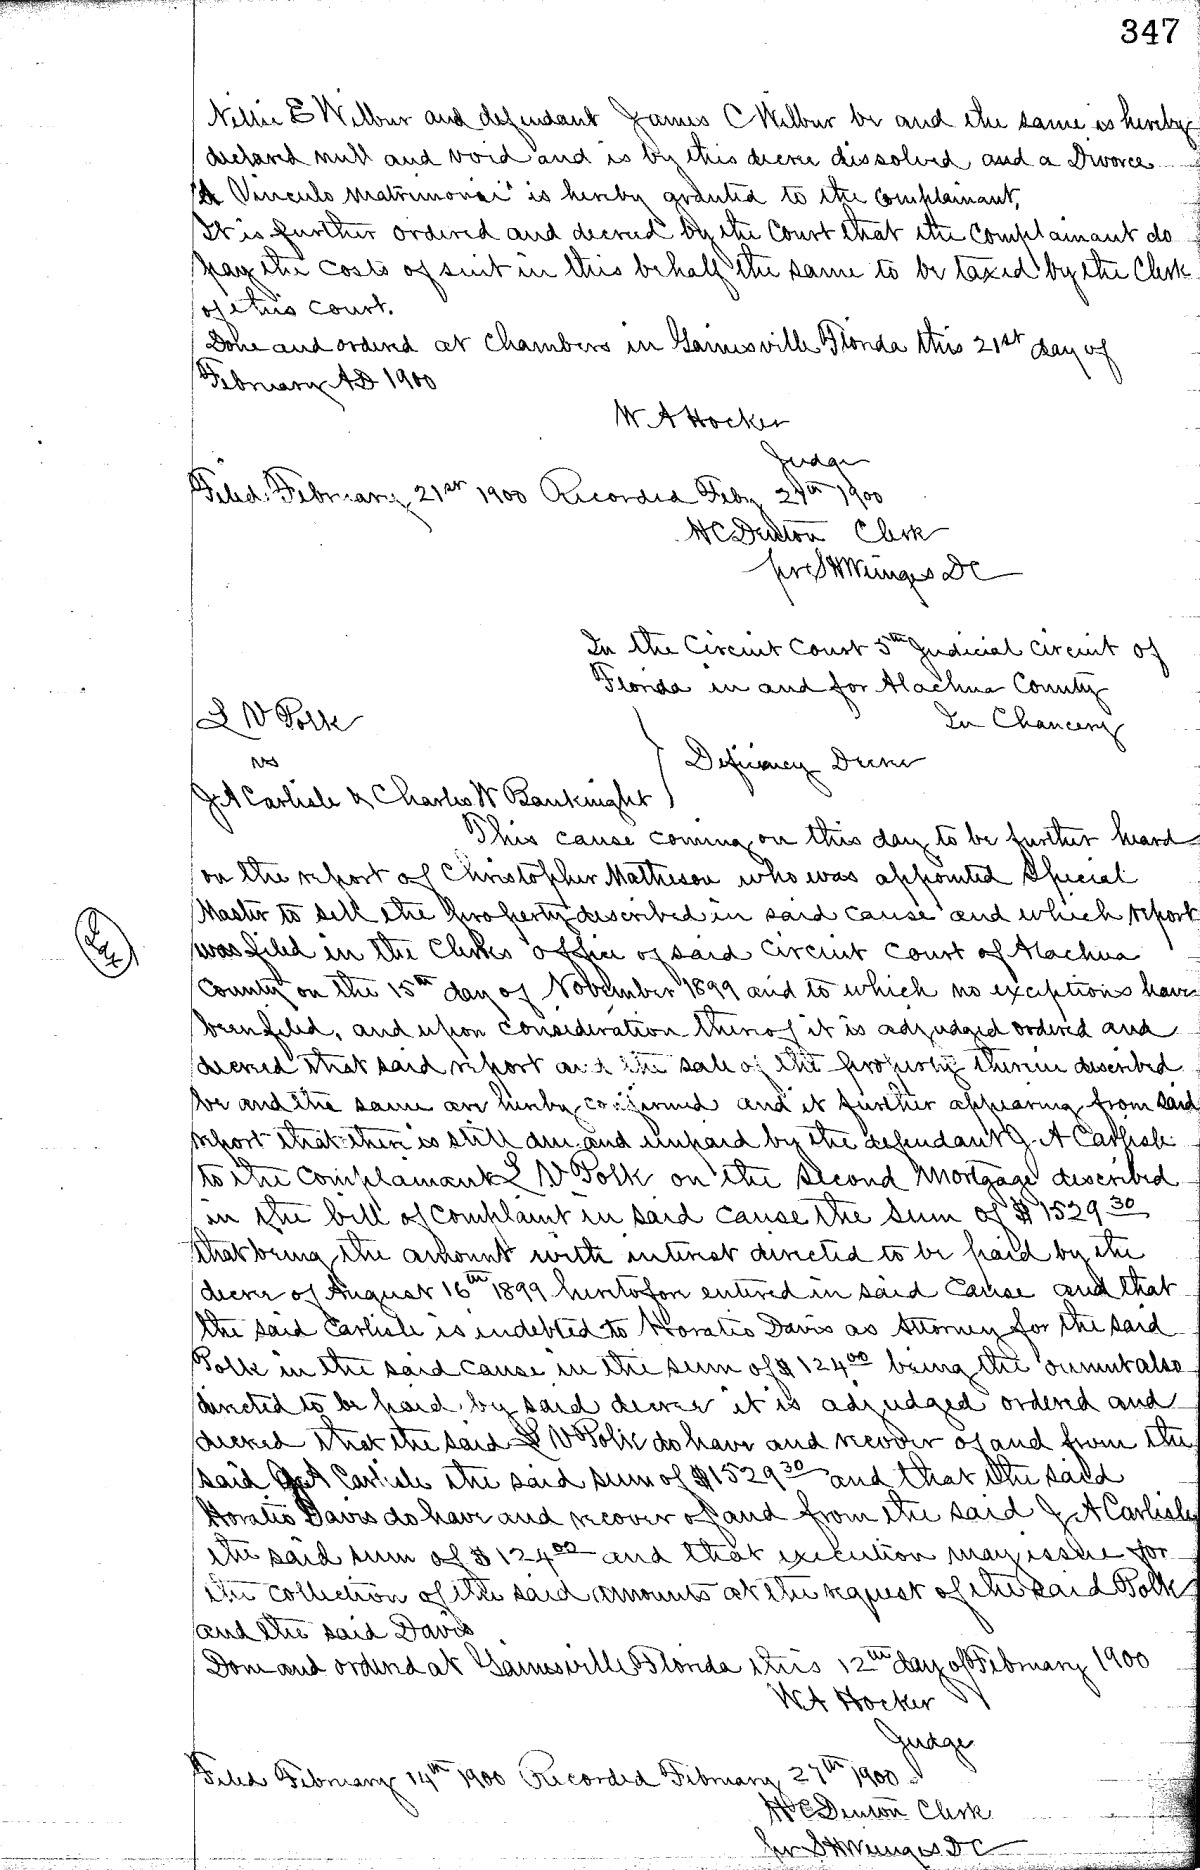 347
Nellie E Wilbur and defendant James C Wilbur be and the same is hereby
declared null and void and is by this decree dissolved and a Divorce
"A Vinculo Matrimonii" is hereby granted to the complainant.
It is further ordered and decreed by the Court that the Complainant do
pay the costs of suit in this behalf the same to be taxed by the Clerk
of this court.
Done and ordered at Chambers in Gainesville Florida this 21st day of
February AD 1900
W A Hocker
Judge
Filed February 21st 1900 Recorded Feby 27th 1900
H C Denton Clerk
per S H Wienges D C
In the Circuit Court 5th Judicial Circuit of
Florida in and for Alachua County
In Chancery
L V Polk
vs
Deficiency Decree
J A Carlisle & Charles W Bauknight
This cause coming on this day to be further heard
on the report of Christopher Matheson who was appointed Special
Master to sell the property described in said cause and which report
was filed in the Clerks office of said Circuit Court of Alachua
County on the 15th day of November 1899 and to which no exceptions have
been filed, and upon consideration thereof it is adjudged ordered and
decreed that said report and the sale of the property therein described
be and the same are hereby confirmed and it further appearing from said
report that there is still due and unpaid by the defendant J. A Carlisle
to the Complainant L V Polk on the second Mortgage described
in the bill of complaint in said cause the sum of $1529 30
that being the amount with interest directed to be paid by the
decree of August 16th 1899 heretofore entered in said cause and that
the said Carlisle is indebted to Horatio Davis as Attorney for the said
Polk in the said cause in the sum of $124 00 being the amount also
directed to be paid by said decree it is adjudged ordered and
decreed that the said L V Polk do have and recover of and from the
said J A Carlisle the said sum of $1529 30 and that the said
Horatio Davis do have and recover of and from the said J A Carlisle
the said sum of $124 00 and that execution may issue for
the collection of the said amounts at the request of the said Polk
and the said Davis
Done and ordered at Gainesville Florida this 12th day of February 1900
W A Hocker
Judge
Filed February 14th 1900 Recorded February 27th 1900
H C Denton Clerk
per S H Wienges D C